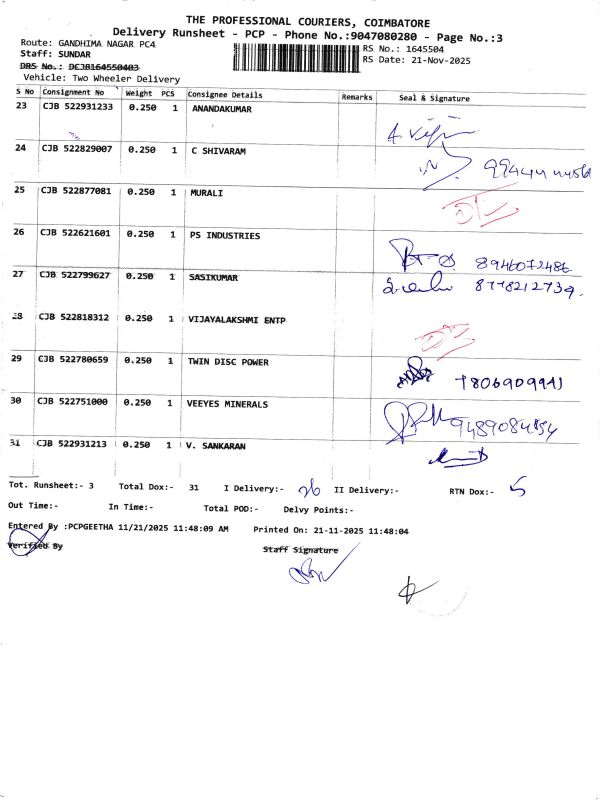 THE PROFESSIONAL COURIERS, COIMBATORE
Delivery Runsheet - PCP - Phone No.:9047080280 - Page No.:3
Route: GANDHIMA NAGAR PC4
RS No.: 1645504
Staff: SUNDAR
RS Date: 21-Nov-2025
DRS No.: DCJB164550403
Vehicle: Two Wheeler Delivery
S No Consignment No Weight PCS Consignee Details Remarks Seal & Signature
23 CJB 522931233 0.250 1 ANANDAKUMAR
24 CJB 522829007 0.250 1 C SHIVARAM
25 CJB 522877081 0.250 1 MURALI
26 CJB 522621601 0.250 1 PS INDUSTRIES 8946072486
27 CJB 522799627 0.250 1 SASIKUMAR 8778212739.
28 CJB 522818312 0.250 1 VIJAYALAKSHMI ENTP
29 CJB 522780659 0.250 1 TWIN DISC POWER 7806909941
30 CJB 522751000 0.250 1 VEEYES MINERALS
31 CJB 522931213 0.250 1 V. SANKARAN
Tot. Runsheet:- 3 Total Dox:- 31 I Delivery:- 26 II Delivery:- RTN Dox:- 5
Out Time:- In Time:- Total POD:- Delvy Points:-
Entered By :PCPGEETHA 11/21/2025 11:48:09 AM Printed On: 21-11-2025 11:48:04
Verified By Staff Signature